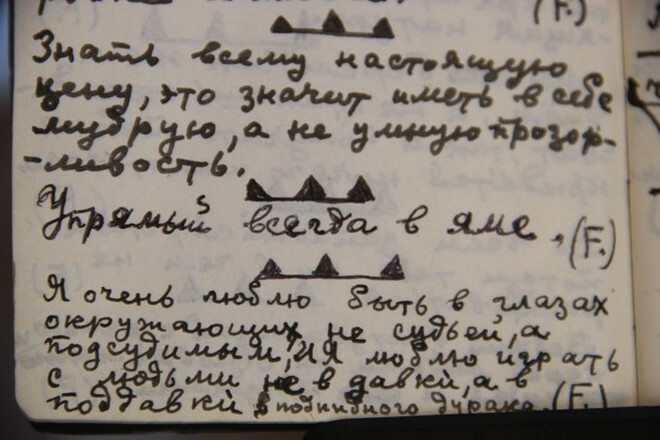 (F.)
Знать всему настоящую
цену, это значит иметь в себе
мудрую, а не умную прозор-
-ливость.
Упрямый всегда в яме. (F.)
Я очень люблю быть в глазах
окружающих не судьей, а
подсудимым! И я люблю играть
с людьми не в давки, а в
поддавки, в подпивного дурака. (F.)